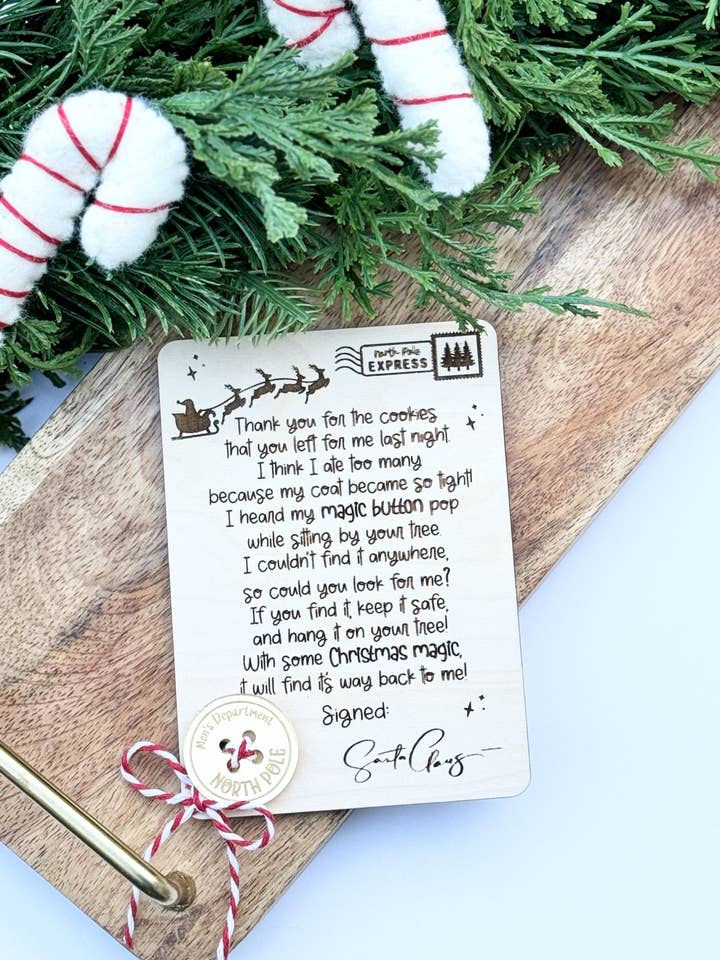 North Pole
EXPRESS
Thank you for the cookies
that you left for me last night
I think I ate too many
because my coat became so tight!
I heard my magic button pop
while sitting by your tree
I couldn't find it anywhere,
so could you look for me?
If you find it, keep it safe,
and hang it on your tree!
With some Christmas magic,
it will find it's way back to me!
Signed:
Santa Claus
Men's Department
NORTH POLE